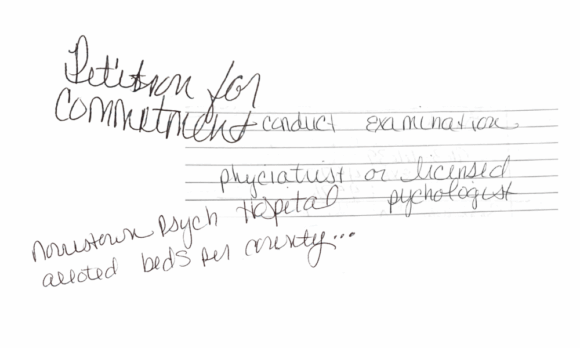 Petition for
Commetment
conduct examination.
phyciatrist or licensed
pychologist
Norristown Psych Hospital
alloted beds per county...